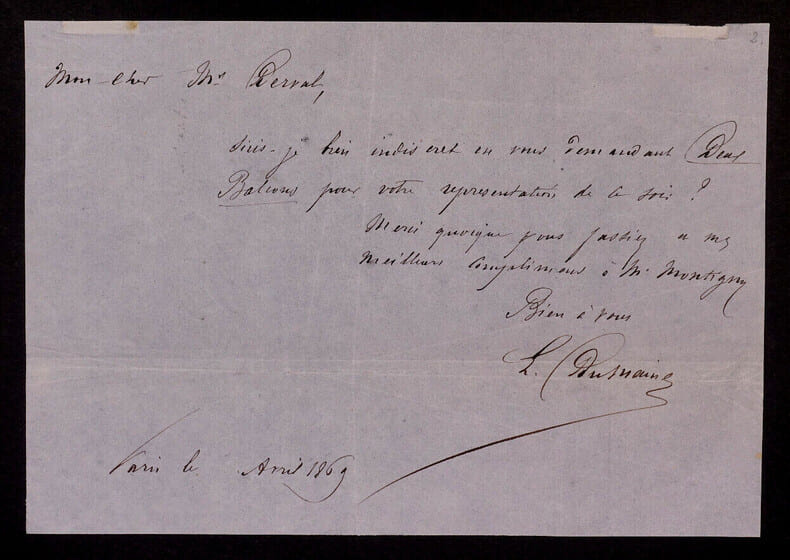 2.
Mon cher Mr Derval,
Suis-je bien indiscret en vous demandant Deux
Balcons pour votre representation de ce soir ?
Merci quoique vous fassiez et mes
meilleurs complimens à Mr Montigny
Bien à vous
L. Dumaine
Paris le Avril 1869